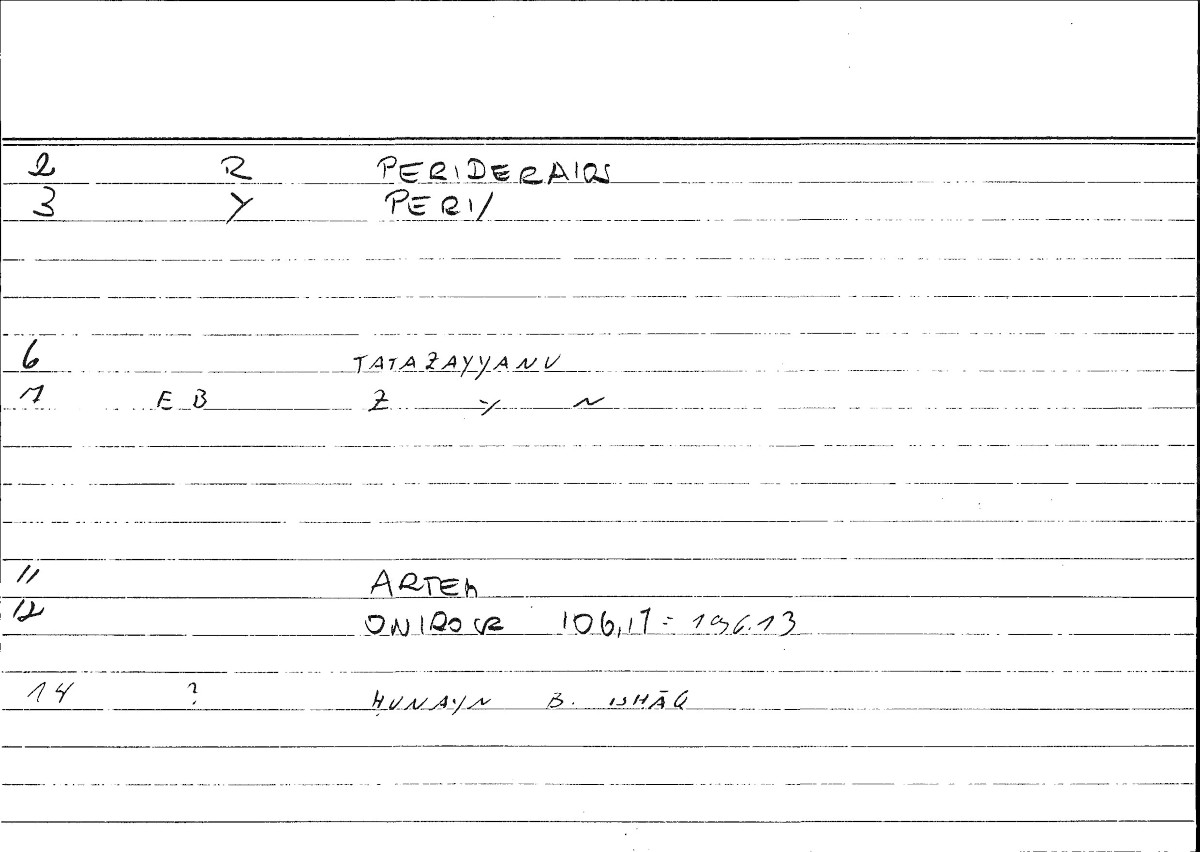 2 R PERIDERAIOS
3 Y PERI/
6 TATAZAYYANU
7 E B Z Y N
11 ARTEM
12 ONIROCR 106,17 = 196.13
14 ? ḤUNAYN B. ISHĀQ